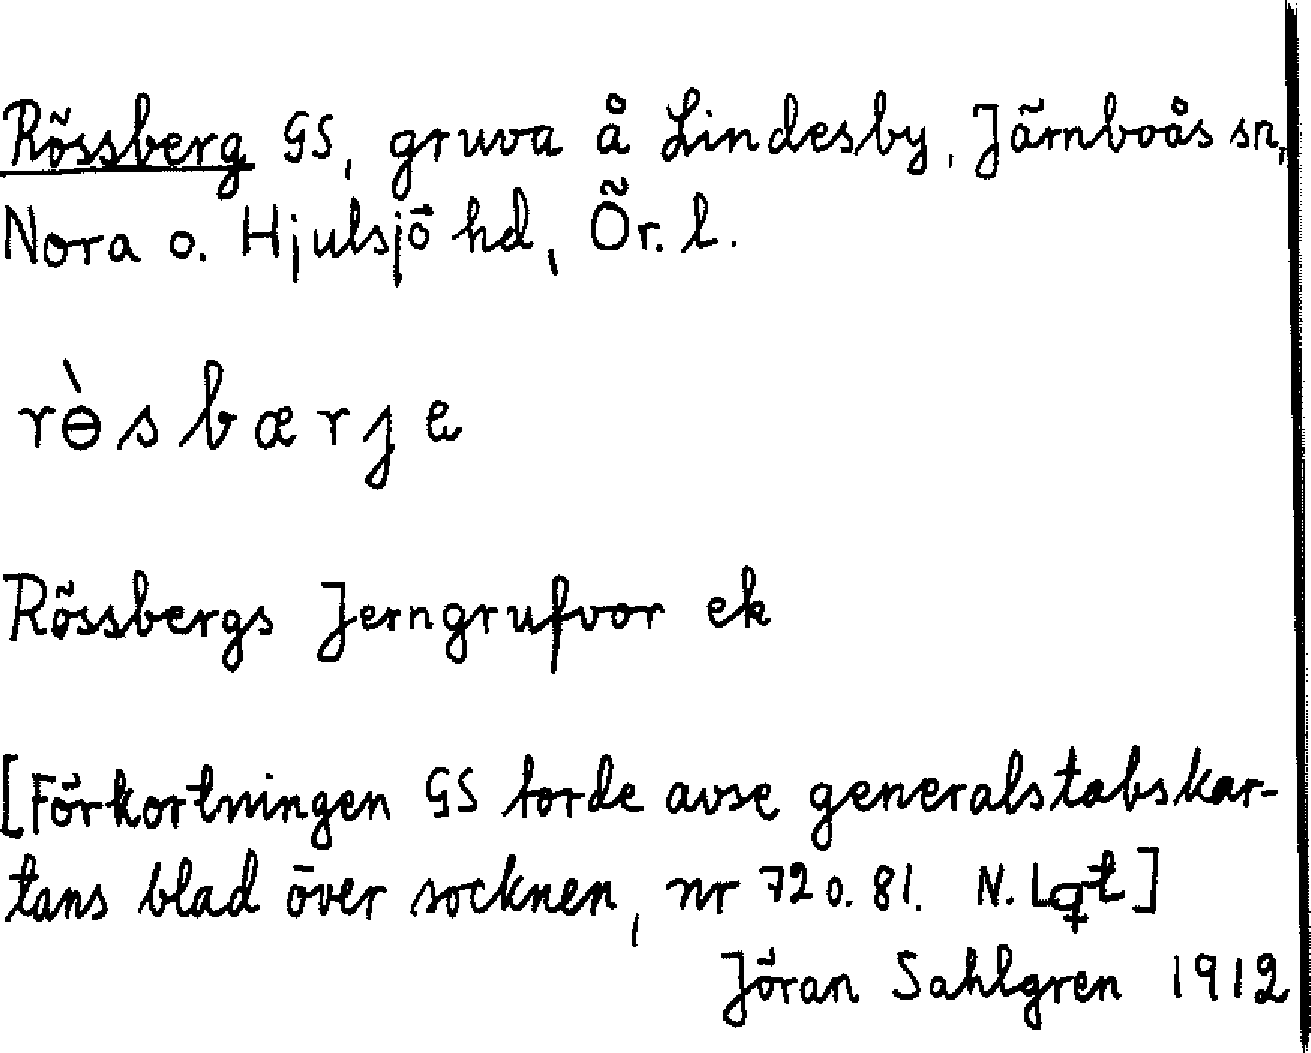 Rössberg GS, gruva å Lindesby, Järnboås sn,
Nora o. Hjulsjö hd, Ör. l.
rɵ̀sbærje
Rössbergs Jerngrufvor ek
[Förkortningen GS torde avse generalstabskar-
tans blad över socknen, nr 72 o. 81. N. Lgt]
Jöran Sahlgren 1912